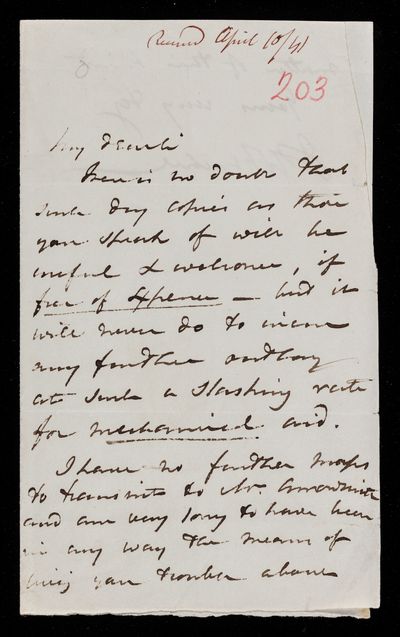 Received April 10/41
203
My dear Sir
There is no doubt that
such dry copies as those
you speak of will be
useful & welcome, if
free of expense – but it
will never do to incur
any further outlay
at such a slashing rate
for mechanical aid.
I have no further maps
to transmit to Mr. Arrowsmith
and am very sorry to have been
in any way the means of
giving you trouble about